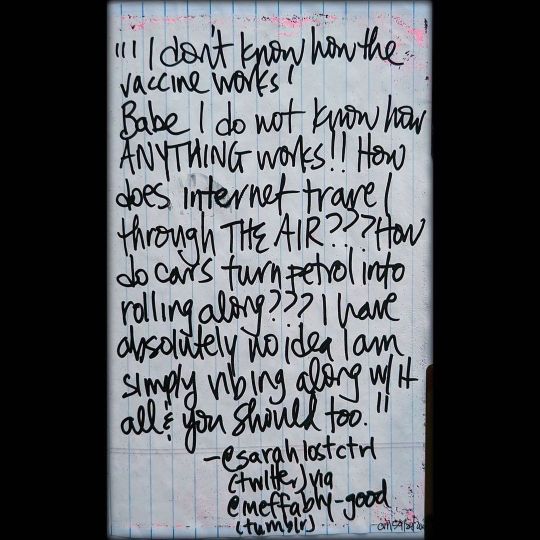 "'I don't know how the
vaccine works'
Babe I do not know how
ANYTHING works!! How
does internet travel
through THE AIR??? How
do cars turn petrol into
rolling along??? I have
absolutely no idea I am
simply vibing along w/it
all & you should too."
-@sarahlostctrl
(twitter) via
@meffably-good
(tumblr)